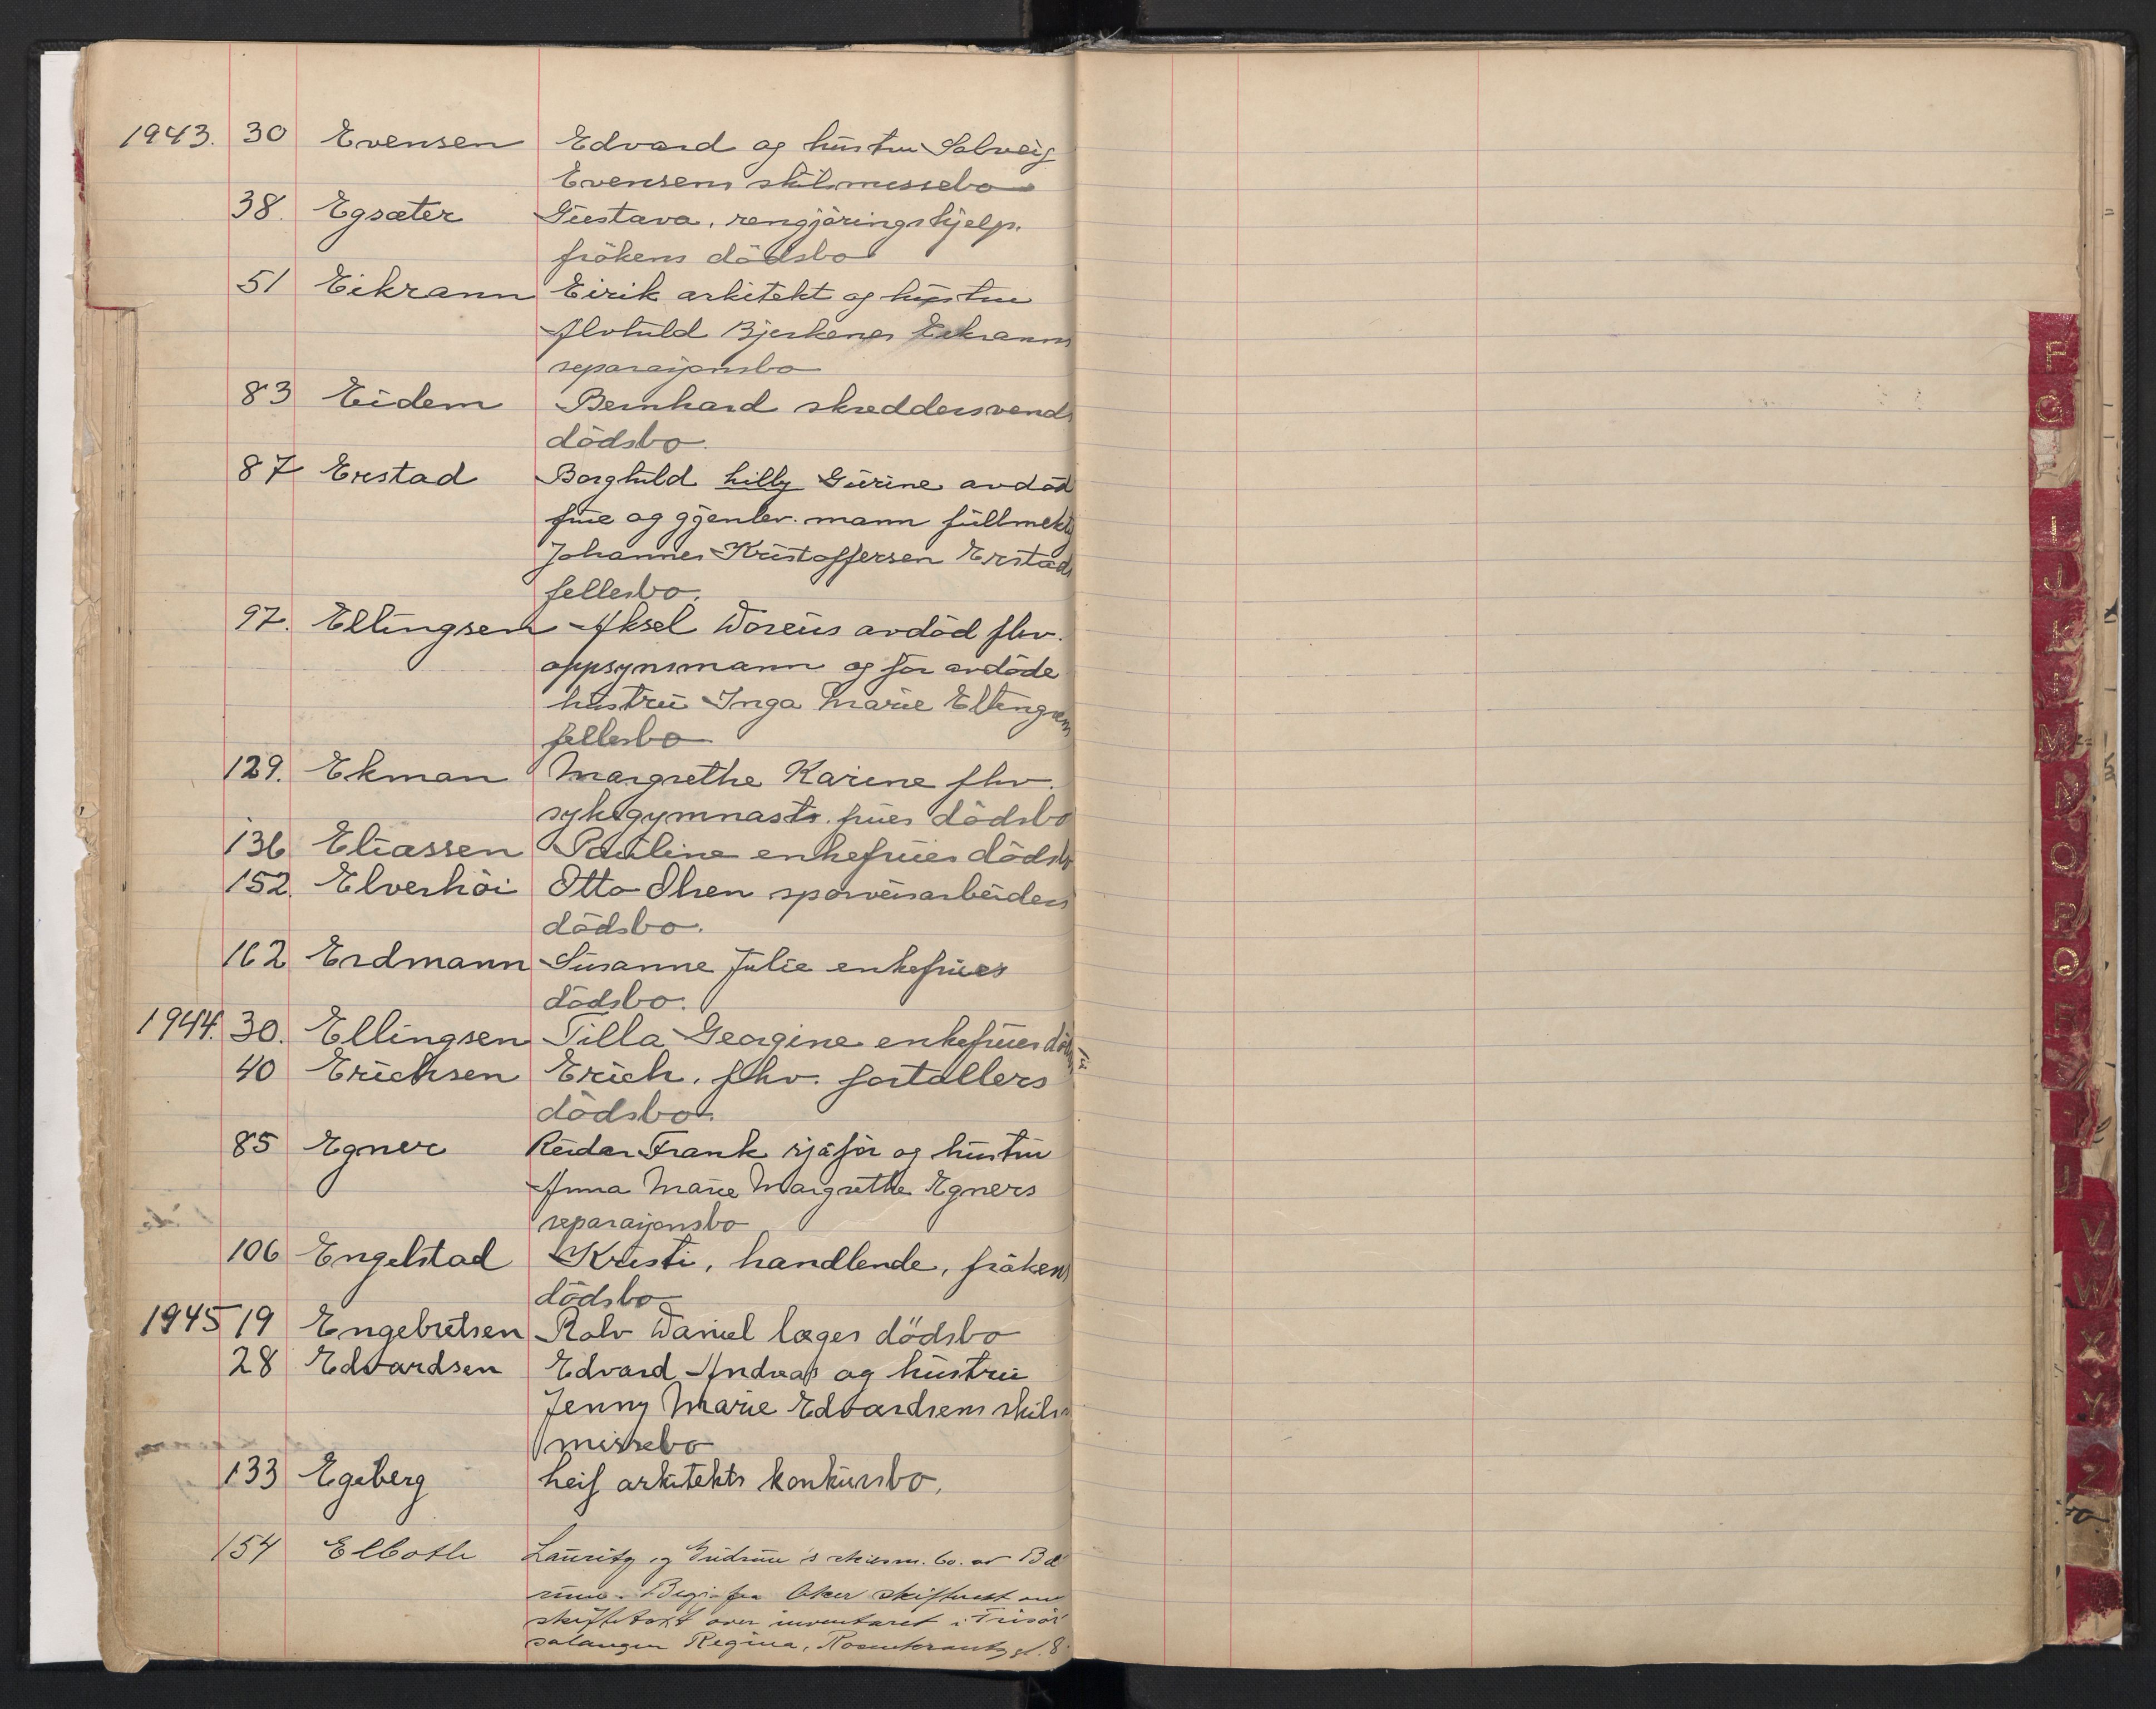 1943. 30 Evensen Edvard og hustru Solveig
Evensens skilsmissebo
38. Egsæter Gustava, rengjöringshjelp.
frökens dödsbo
51 Eikrann Eirik arkitekt og hustru
Alvhild Bjerkenes Eikranns
separasjonsbo
83 Eidem Bernhard skreddersvends
dödsbo.
87 Erstad Borghild Lilly Gurine avdöd
frue og gjenlev. mann fullmekt.
Johannes Kristoffersen Erstads
fellesbo.
97. Ellingsen Aksel Doreus avdöd fhv.
oppsynsmann og för avdöde
hustru Inga Marie Ellingsens
fellesbo
129. Ekman Margrethe Karine fhv.
sykegymnasts. frues dödsbo
136 Eliassen Pauline enkefrues dödsbo
152. Elverhöi Otto Olsen sporveisarbeiders
dödsbo.
162 Erdmann Susanne Julie enkefrues
dödsbo.
1944. 30. Ellingsen Tilla Georgine enkefrues dödsbo
40 Erichsen Erich, fhv. fortollers
dödsbo.
85 Egner Reidar Frank sjåför og hustru
Anna Marie Margrethe Egners
separasjonsbo
106 Engelstad Kristi, handlende, frökens
dödsbo
1945 19 Engebretsen Rolv Daniel læges dödsbo
28 Edvardsen Edvard Andreas og hustru
Jenny Marie Edvardsens skils
missebo
133 Egeberg Leif arkitekts konkursbo.
154 Elboth Lauritz og Gudrun's skilsm. bo. av Bæ
rum. Begj. fra Aker skifterett om
skiftetakst over inventaret i Frisör
salongen Regina, Rosenkrantzgt. 8.
F
G
I
J
K
L
M
N
O
P
Q
R
V
W
X
Y
Z